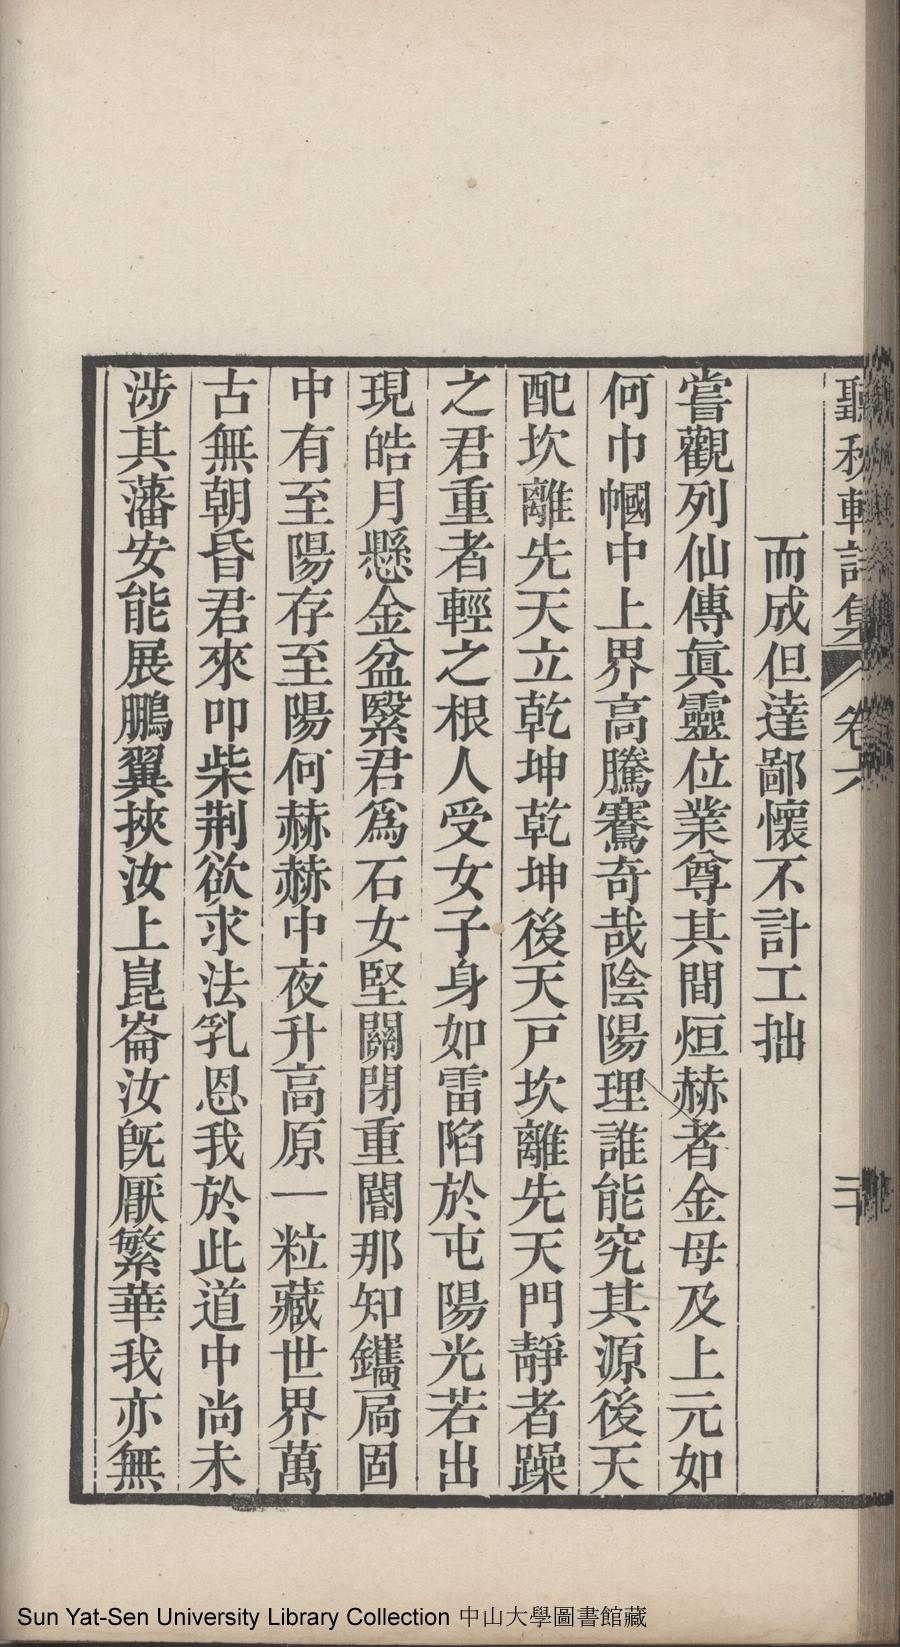 聽秋軒詩集 卷六 二
而成但達鄙懷不計工拙
嘗觀列仙傳眞靈位業尊其間烜赫者金母及上元如
何巾幗中上界高騰騫奇哉陰陽理誰能究其源後天
配坎離先天立乾坤乾坤後天戸坎離先天門靜者躁
之君重者輕之根人受女子身如雷陷於屯陽光若出
現皓月懸金盆繄君爲石女堅關閉重閽那知鑴扃固
中有至陽存至陽何赫赫中夜升高原一粒藏世界萬
古無朝昏君來叩柴荆欲求法乳恩我於此道中尚未
涉其藩安能展鵬翼挾汝上崑崙汝旣厭繁華我亦無
Sun Yat-Sen University Library Collection 中山大學圖書館藏